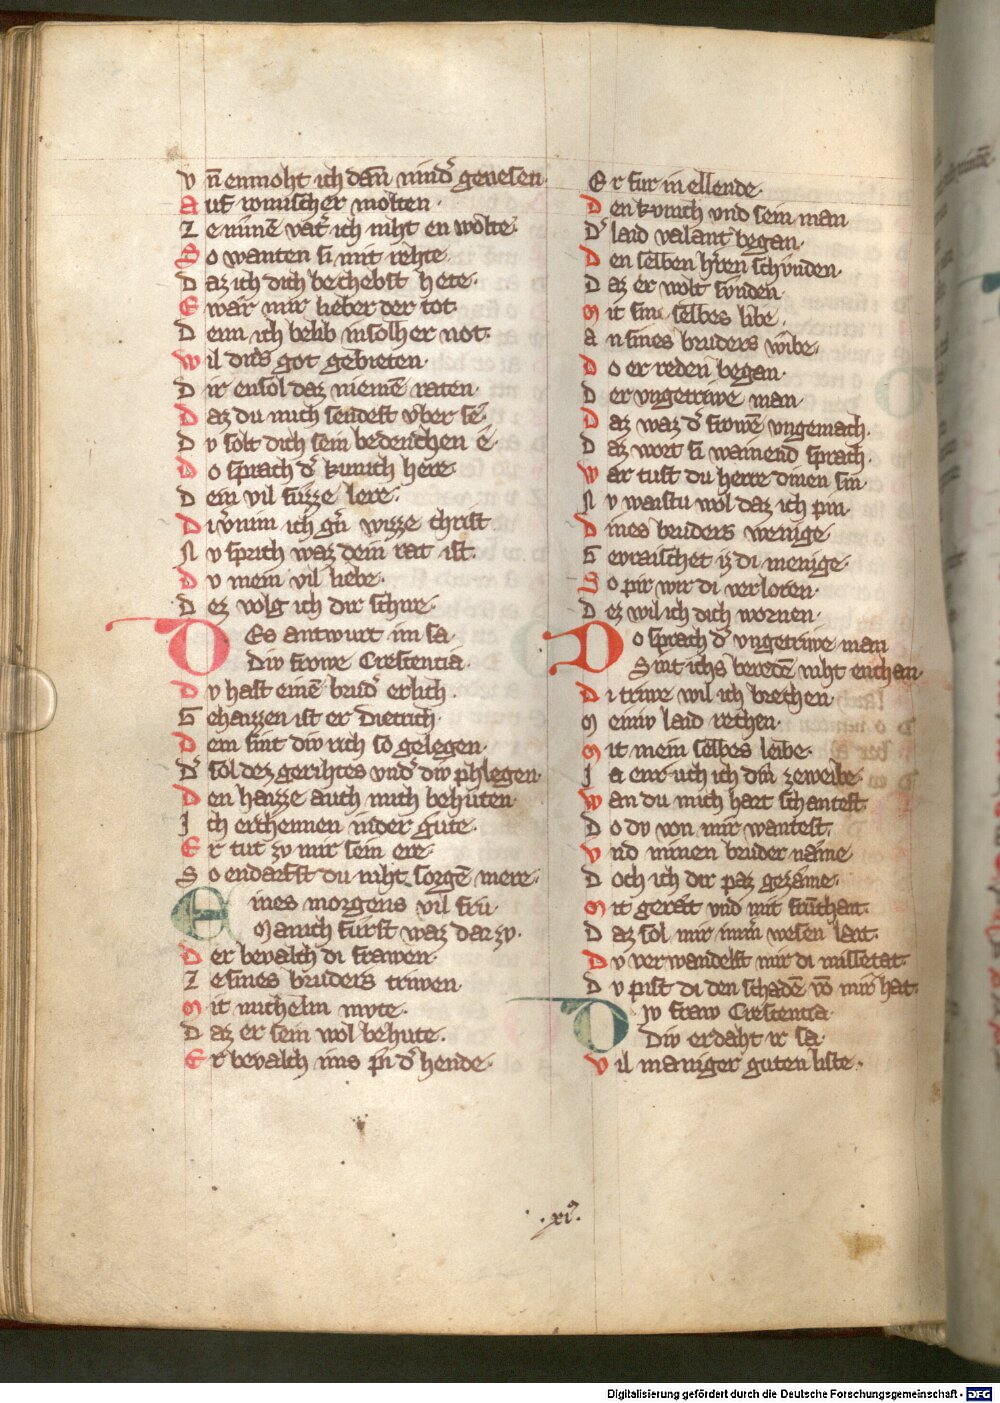 vn̄ enmoht ich dan̄ nind᷑ geuesen·
Auf romischer molten·
Ze minē vat᷑ ich niht en wolte·
So wanten si mit rehte·
Daz ich dich bechebst hete·
E war mir lieber der tot·
Denn ich belib in solher not·
Wil dirs got gebieten·
Dir ensol daz niemē raten·
Daz du mich sendest vber se·
Dv solt dich sein bedenchen e·
Do sprach d᷑ kunich here·
Dein vil suzze lere·
Di v᷑nim ich g᷑n wizze christ
Nv sprich waz dein rat ist·
Dv mein vil liebe·
Dez volg ich dir schire·
Des antwurt im sa·
Div frowe Crescentia·
Dv hast einē brud᷑ erlich·
Gehaizzen ist er Dietrich·
Dem sint div rich so gelegen·
D᷑ sol dez gerihtes vnd᷑ div phlegen·
Den haizze auch mich behuten·
Ich erchennen in der gute·
Er tut zv mir sein ere·
So endarfst du niht sorgē mere·
Eines morgens vil fru·
Manich furst waz dar zv·
Der bevalch di frawen·
Ze sines bruders triwen·
Mit michelm mvte·
Daz er sein wol behute·
Er bevalch ims pi d᷑ hende·
Er fur in ellende·
Den kvnich vnd sein man
D᷑ laid valant began·
Den selben h᷑ren schvnden·
Daz er wolt svnden·
Mit sin selbes libe·
An sines bruders wibe·
Do er reden began·
Der vngetriwe man·
Daz waz d᷑ frowē vngemach·
Daz wort si wainend sprach·
War tust du herre dinen sin·
Nv waistu wol daz ich pin·
Dines bruders wenige·
Gevraischet iz di menige·
So pir wir di verloren·
Dez wil ich dich wornen·
Do sprach d᷑ vngetriwe man
Sint ichs beredē niht enchan·
Di triwe wil ich brechen·
Meiniv laid rechen·
Mit mein selbes leibe·
Ja enruch ich din zeweibe·
Wan du mich hart schantest·
Do dv von mir wantest·
Vnd minen bruder næme·
Doch ich dir paz gezæme·
Mit gerat vnd mit fruͤchait·
Daz sol mir imm᷑ wesen lait·
Dv verwandelst mir di missetat·
Dv pist di den schadē vō mir hat·
Dw fraw Crescentia·
Div erdaht ir sa·
Vil maniger guten liste·
·xi᷑·
Digitalisierung gefördert durch die Deutsche Forschungsgemeinschaft - DFG